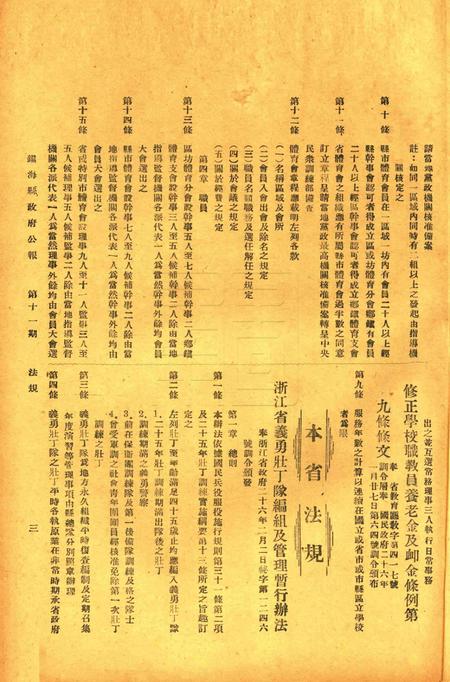 請當地黨政機關核准備案
註：如同一區域內同時有二組以上之發起由指導機
關核定之
第十條 縣市體育會會員在一區域一坊內有會員二十人以上經
縣幹事會認可者得成立區或坊體育分會鄉鎮有會員
二十人以上經區幹事會認可者得成立鄉鎮體育支會
第十一條 省體育會之組織應有所屬縣市體育會過半數之同意
訂立章程呈請當地黨政最高機關核准備案轉呈中央
民衆訓練部備查
第十二條 體育會章程應載明左列各款
(一)名稱區域及會所
(二)會員入會出會及除名之規定
(三)職員名額職務及選任解任之規定
(四)關於會議之規定
(五)關於經費之規定
第四章 職員
第十三條 區坊體育分會設幹事五人至七人候補幹事二人鄉鎮
體育支會設幹事三人至五人候補幹事一人除由當地
指導監督機關各派代表一人爲當然幹事外餘均會員
大會選出之
第十四條 縣市體育會設幹事七人至九人候補幹事二人除由當
地指導監督機關各派代表一人爲當然幹事外餘均由
會員大會選出之
第十五條 省或特別市體育會設理事九人至十一人監事三人至
五人候補理事五人候補監事二人除由當地指導監督
機關各派代表一人爲當然理事外餘均由會員大會選
鎭海縣政府公報 第十一期 法規
出之並互選常務理事三人執行日常事務
修正學校職教員養老金及卹金條例第
九條條文
奉 省教育廳教字第四一七號
訓令層奉 國民政府二十六年
一月廿七日第六四號訓令頒布
第九條 服務年數之計算以連續在國立或省市或縣區立學校
者爲限
本省法規
浙江省義勇壯丁隊編組及管理暫行辦法
奉浙江省政府二十六年二月二日秘字第一二四六
號訓令頒發
第一章 總則
第一條 本辦法依據國民兵役服役施行規則第三十一條第二項
及二十五年壯丁訓練實施綱要第十三條所定之旨趣訂
定之
第二條 左列壯丁至年齡滿足四十五歲止均應編入義勇壯丁隊
1.二十五年壯丁訓練期滿出隊後之壯丁
2.訓練期滿之義勇警察
3.前在保衛團訓練隊及第一後備隊訓練及格之隊士
4.曾受軍訓之社會靑年團團員經核准免除第一次壯丁
訓練之壯丁
第三條 義勇壯丁隊爲地方永久組織平時復查編制及定期召集
年度演習等管理事項由縣總隊分別照章辦理
第四條 義勇壯丁隊之壯丁平時各執原業在非常時期承省政府
三